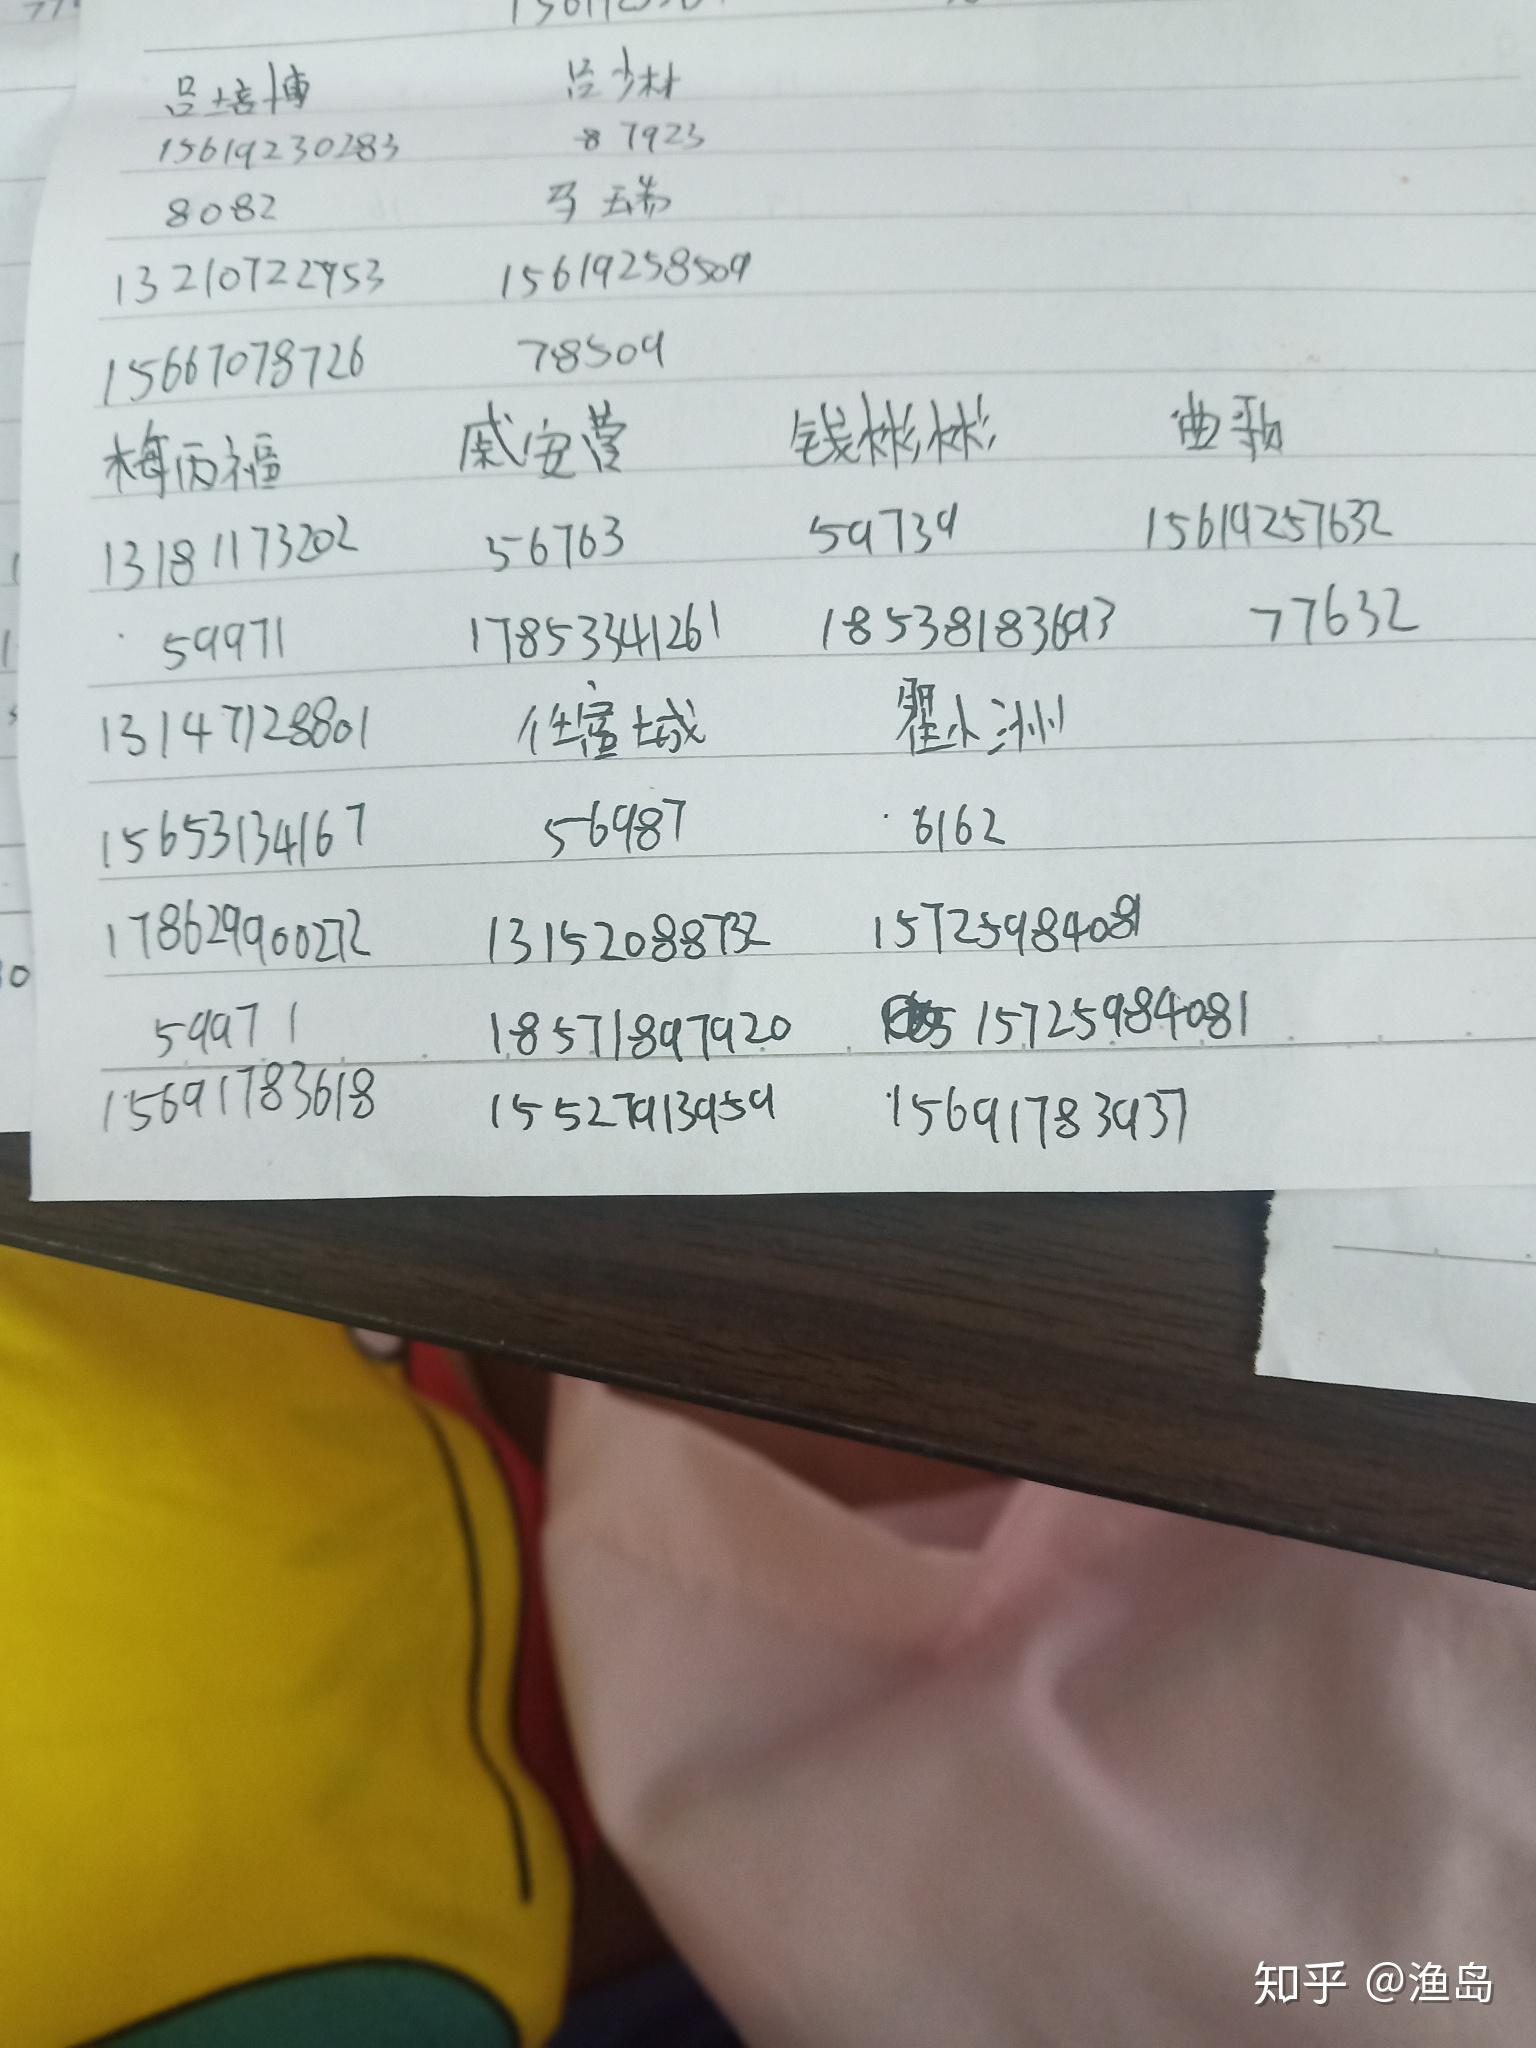 吕培博 吕少林
15619230283 87923
8082 马瑞
13210722953 15619258509
15667078726 78509
梅丙福 戚安营 钱彬彬 曲歌
13181173202 56763 59739 15619257632
59971 17853341261 18538183693 77632
13147128801 任富城 翟小洲
15653134167 56987 8162
178629900272 13152088732 15725984081
59971 18571897920 15725984081
15691783618 15527913959 15691783937
知乎 @渔岛